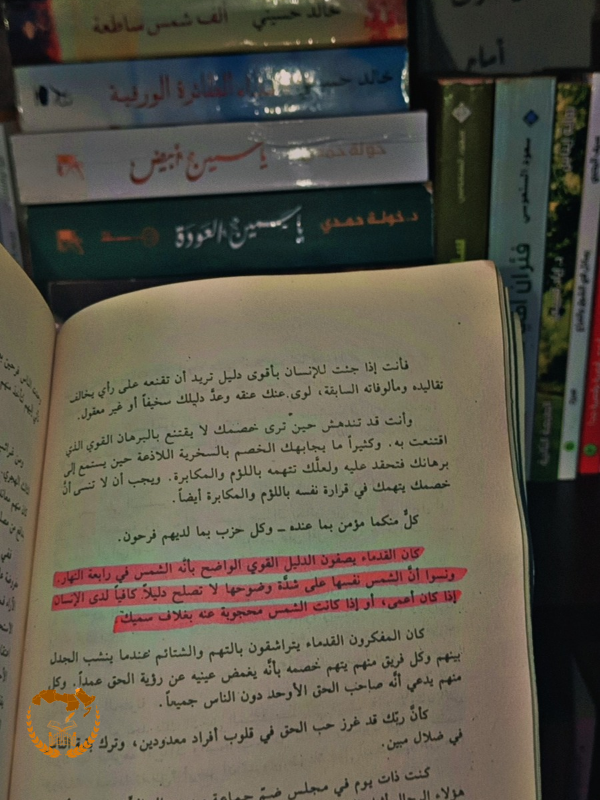 خالد حسيني ألف شمس ساطعة
خالد حسيني الطائرة الورقية
خولة حمدي ياسمين أبيض
د. خولة حمدي ياسمين العودة
أمام
سعود السنعوسي
فئران
فأنت إذا جئت للإنسان بأقوى دليل تريد أن تقنعه على رأي يخالف
تقاليده ومألوفاته السابقة، لوى عنك عنقه وعدَّ دليلك سخيفاً أو غير معقول.
وأنت قد تندهش حين ترى خصمك لا يقتنع بالبرهان القوي الذي
اقتنعت به. وكثيراً ما يجابهك الخصم بالسخرية اللاذعة حين يستمع إلى
برهانك فتحقد عليه ولعلَّك تتهمه باللؤم والمكابرة. ويجب أن لا تنسى أنَّ
خصمك يتهمك في قرارة نفسه باللؤم والمكابرة أيضاً.
كلٌّ منكما مؤمن بما عنده ــ وكل حزب بما لديهم فرحون.
كان القدماء يصفون الدليل القوي الواضح بأنَّه الشمس في رابعة النهار.
ونسوا أنَّ الشمس نفسها على شدَّة وضوحها لا تصلح دليلاً كافياً لدى الإنسان
إذا كان أعمى، أو إذا كانت الشمس محجوبة عنه بغلاف سميك
كان المفكرون القدماء يتراشقون بالتهم والشتائم عندما ينشب الجدل
بينهم وكل فريق منهم يتهم خصمه بأنَّه يغمض عينيه عن رؤية الحق عمداً. وكل
منهم يدعي أنَّه صاحب الحق الأوحد دون الناس جميعاً.
كأنَّ ربّك قد غرز حب الحق في قلوب أفراد معدودين، وترك بقية الناس
في ضلال مبين.
كنت ذات يوم في مجلس ضمّ جماعة
هؤلاء